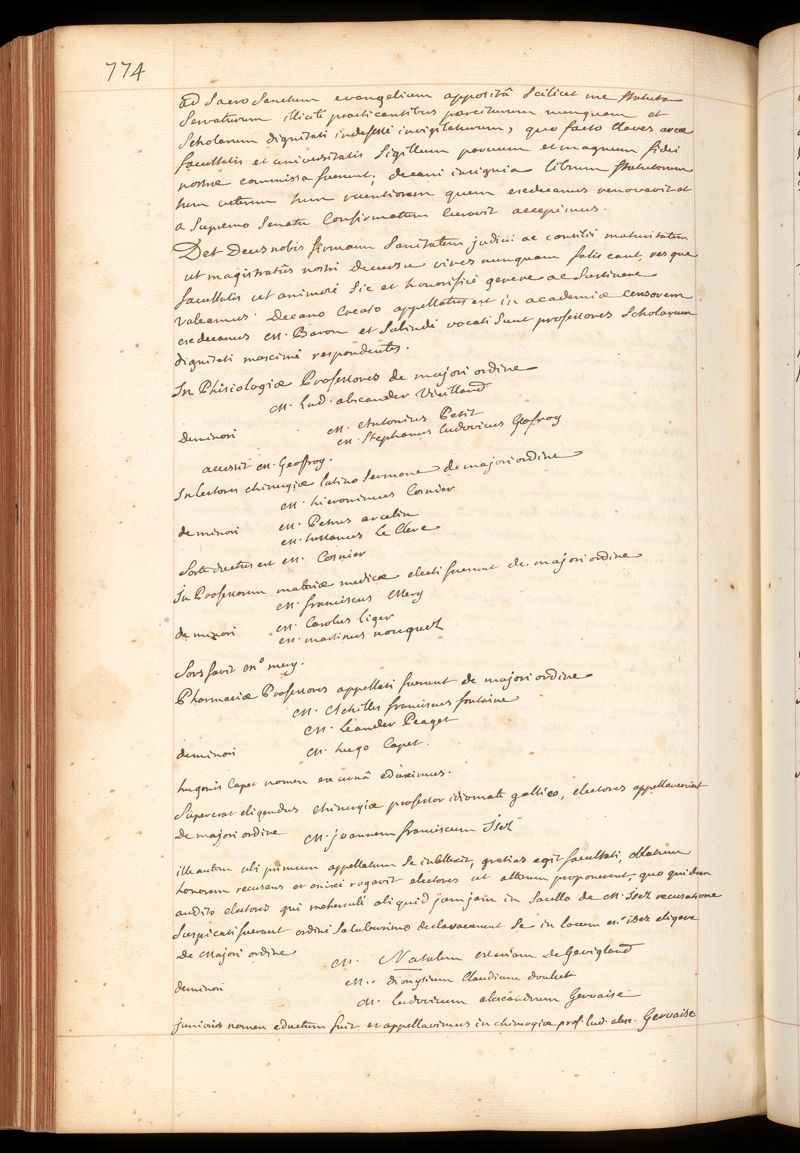 774
ad Sacro Sanctum evangelium appositâ Scilicet me Statuta
Servaturum illicitè practicantibus parciturum nunquam et
Scholarum dignitati indefessè invigilaturum, quo facto Claves arcæ
facultatis et universitatis Sigillum parvum et magnum fidei
nostræ commissa fuerunt; decani insignia librum Statutorum
tum veterum tum recentiorum quem exdecanus renovavit et
a Supremo Senatu Confirmatum Curavit accepimus.
Det Deus nobis firmam Sanitatem judicii ac consilii maturitatem
ut magistratûs nostri Decursu vires nunquam satis eant, resque
facultatis ut animus Sic et honorificè gerere ac Sustinere
valeamus. Decano Creato appellatus est in academiæ censorem
exdecanus M. Baron et Subindè vocati Sunt professores Scholarum
dignitati maximè respondentes.
In Phisiologiæ Professores de majori ordine
M. Lud. alexander Vieilland
de minori
M. Antonius Petit
M. Stephanus Ludovicus Geofroy
accessit M. Geoffroy.
In lectores chirurgiæ latino Sermone de majori ordine
M. hieronimus Cosnier
de minori M. Petrus arcelin
M. Le Clerc
Sorte ductus est M. Cosnier
In Professorem materiæ medicæ electi fuerunt de majori ordine
M. franciscus Mery
de minori M. Carolus Liger
M. martinus nouguez
Sors favit Mo. mery.
Pharmaciæ Professores appellati fuerunt de majori ordine
M. Achilles franciscus fontaine
M. Leander Peaget
de minori M. hugo Capet.
hugonis Capet nomen ex urnâ eduximus.
Supererat eligendus Chirurgiæ professor idiomate gallico, electores appellaverunt
De majori ordine M. joannem franciscum Isez
ille autem ubi primum appellatum Se intellexit, gratias egit facultati, oblatum
honorem recusans et enixè rogavit electores ut alterum proponerent, quo quidem
audito electores qui mehercule aliquid jamjam in Sacello de M. Isez recusatione
Suspicati fuerant ordini Saluberrimo declaraverunt Se in locum M. isez eligere
De Majori ordine M. Natalem mariam De Gevigland
de minori M. dionysium Claudium doulcet
M. Ludovicum alexandrum Gervaise
junioris nomen eductum fuit et appellavimus in chirurgiæ prof. Lud. alex. Gervaise